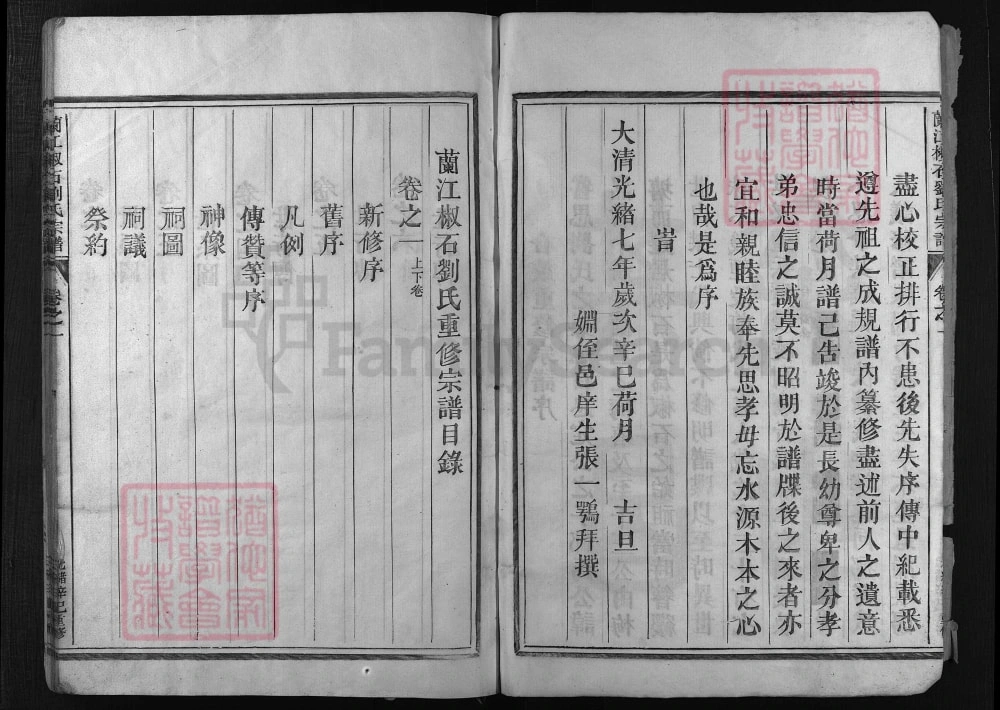 蘭江椒石劉氏宗譜
卷之一
盡心校正排行不患後先失序傳中紀載悉
遵先祖之成規譜內纂修盡述前人之遺意
時當荷月譜已告竣於是長幼尊卑之分孝
弟忠信之誠莫不昭明於譜牒後之來者亦
宜和親睦族奉先思孝毋忘水源木本之心
也哉是爲序
旹
大清光緒七年歲次辛巳荷月 吉旦
婣侄邑庠生張一鶚拜撰
蘭江椒石劉氏重修宗譜目錄
卷之一上下卷
新修序
舊序
凡例
傳贊等序
神像
祠圖
祠議
祭約
蘭江椒石劉氏宗譜
卷之一
光緒辛巳重修
FamilySearch